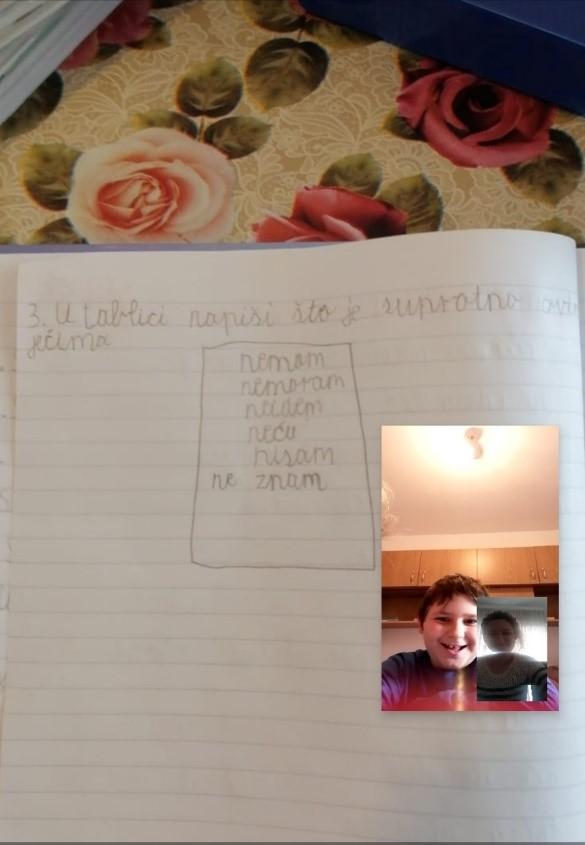 3. U tablici napiši što je suprotno ovim
ječima
nemam
nemoram
neidem
neću
nisam
ne znam